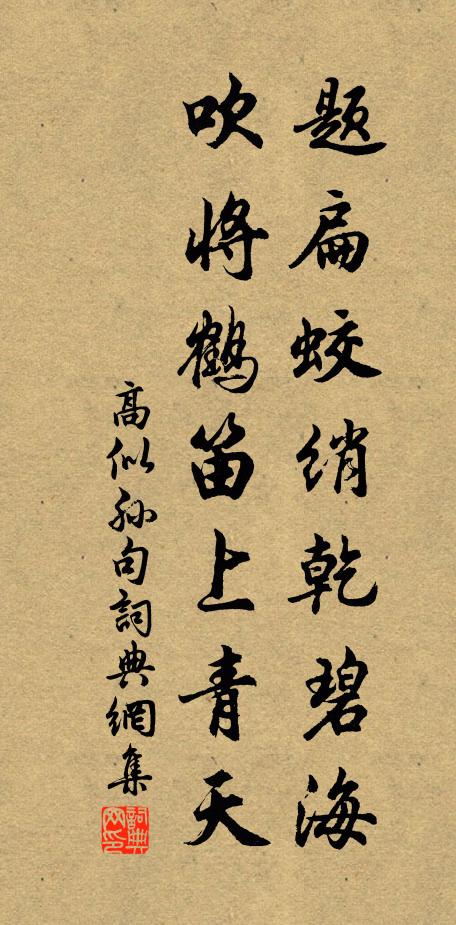 题扁蛟绡乾碧海
吹将鹤笛上青天
高似孙句詞典網集
詞典網印